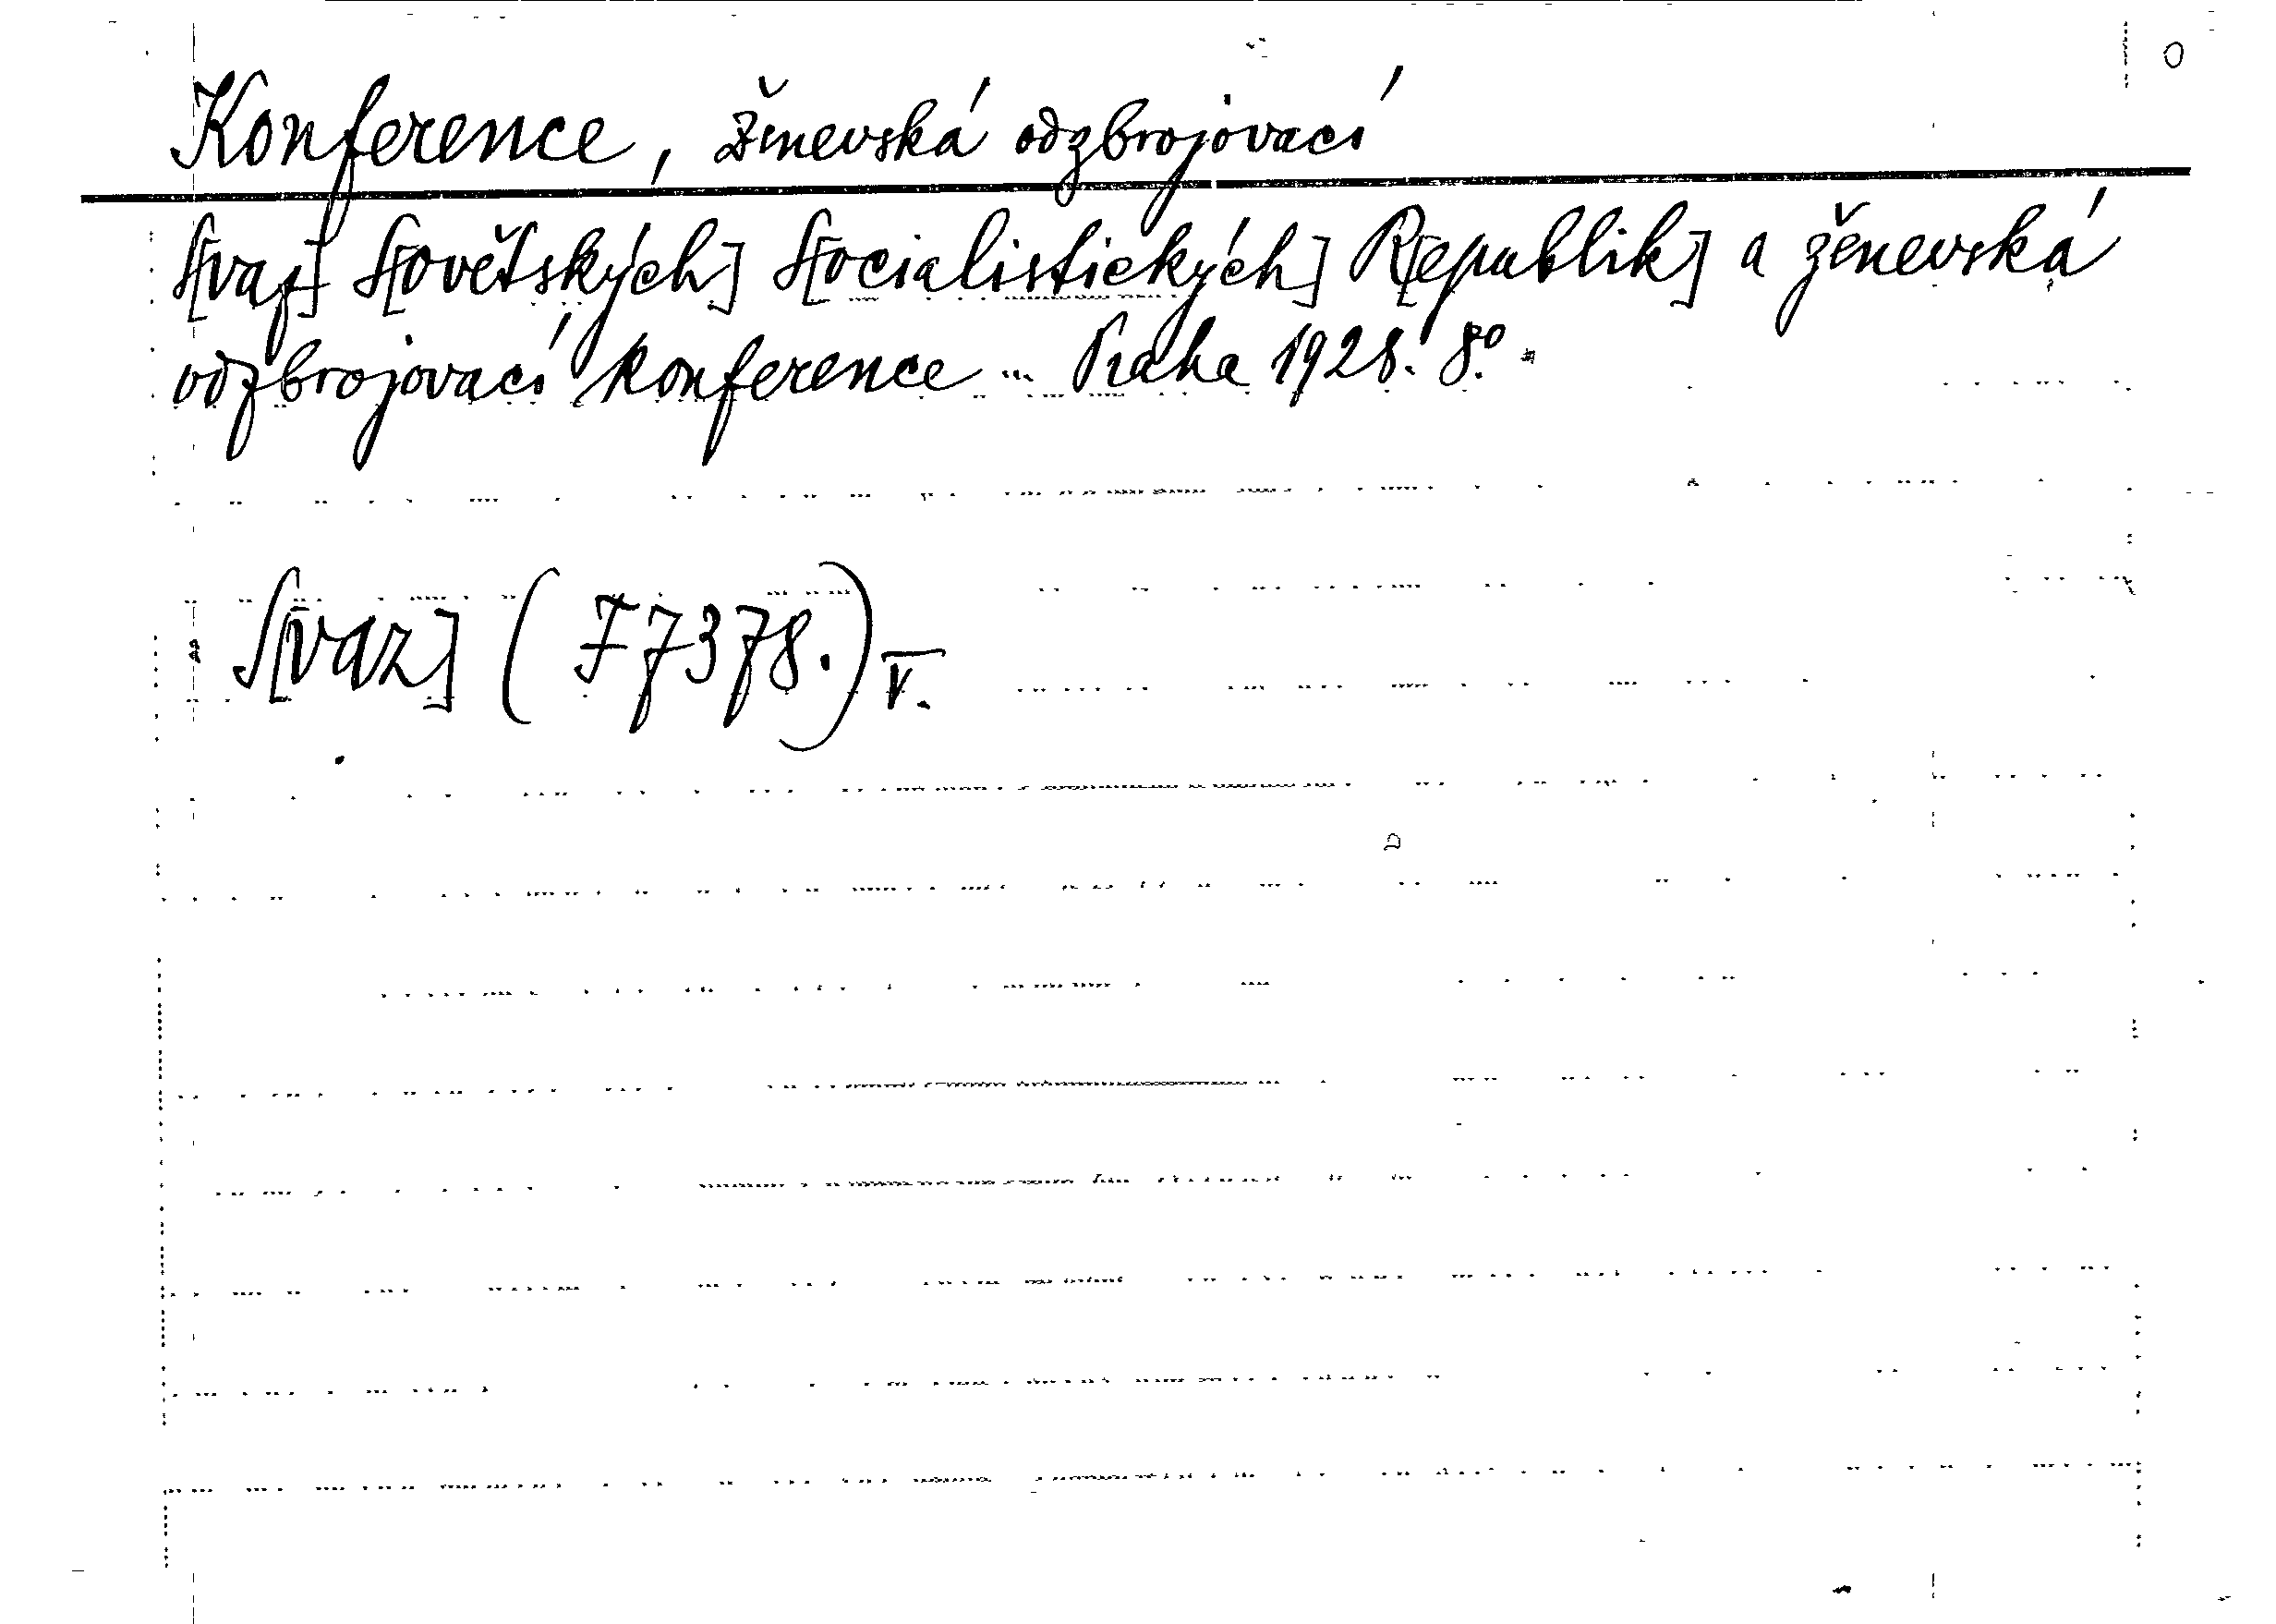 Konference, ženevská odzbrojovací
S[vaz] S[ovětských] S[ocialistických] R[epublik] a ženevská
odzbrojovací konference ... Praha 1928. 8.º
S[vaz] (F7378.) V.